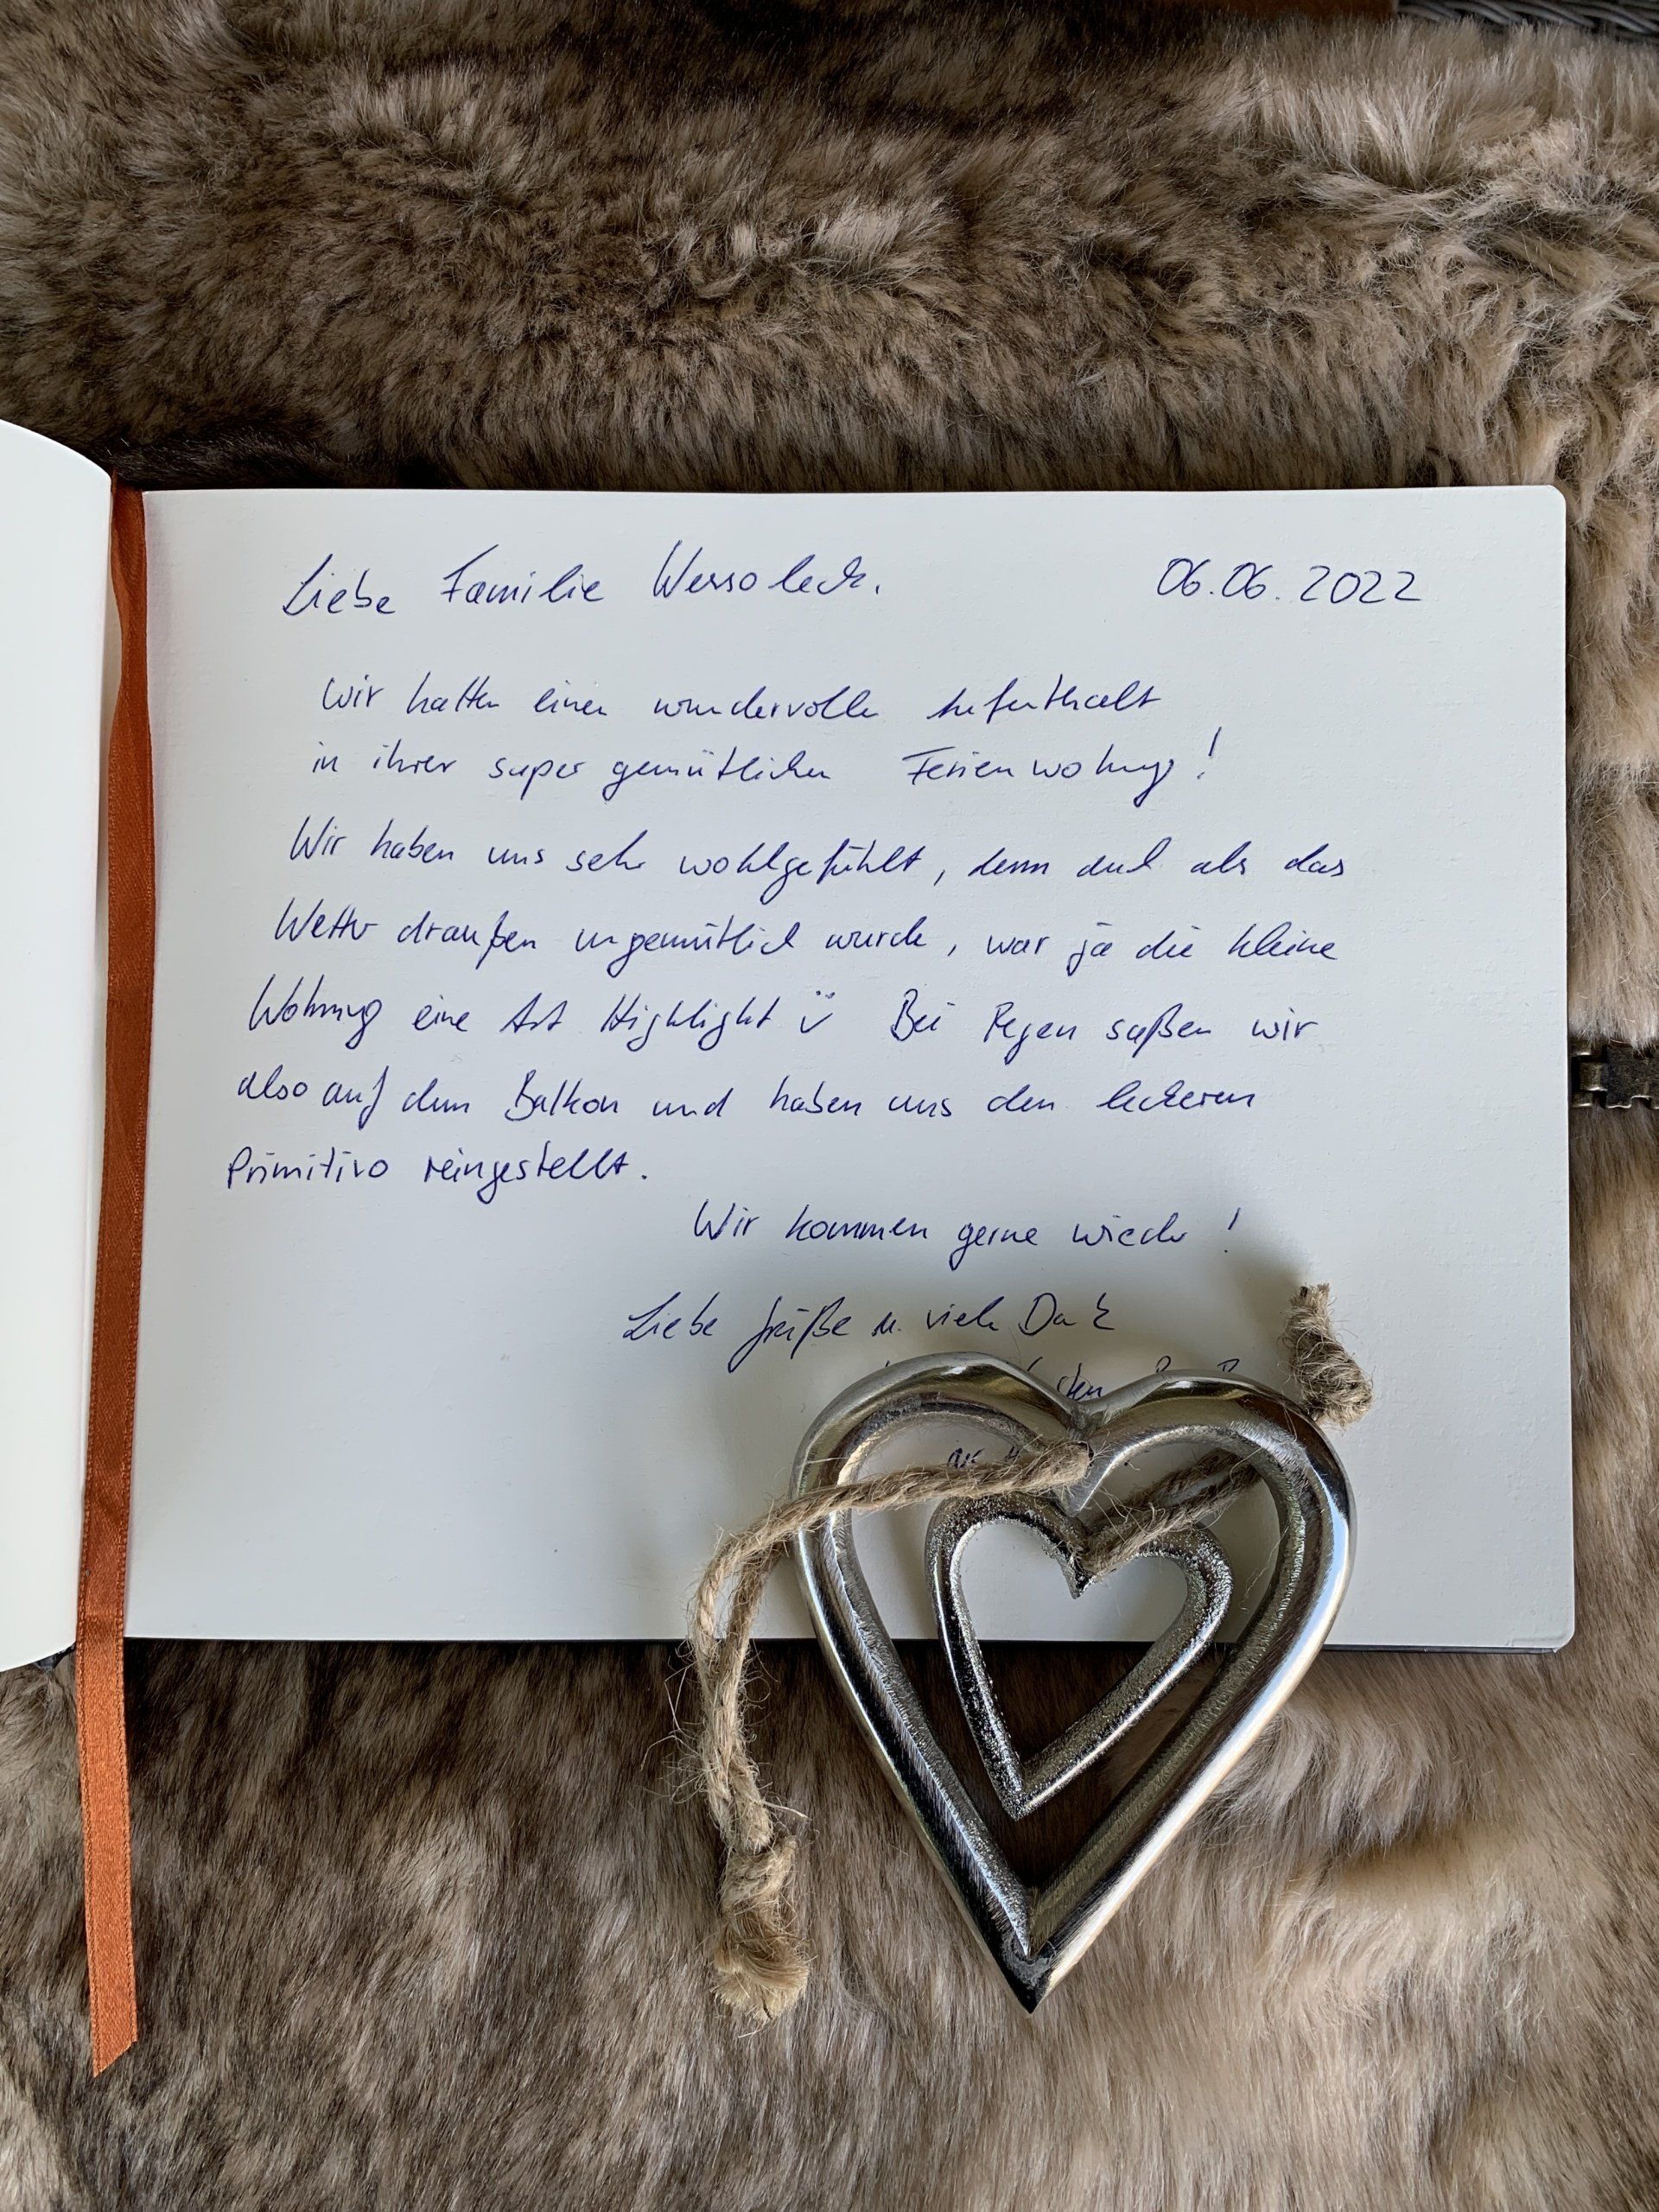 Liebe Familie Wessoleck, 06.06.2022
Wir hatten einen wundervollen Aufenthalt
in ihrer super gemütlichen Ferienwohnung!
Wir haben uns sehr wohlgefühlt, denn auch als das
Wetter draußen ungemütlich wurde, war ja die kleine
Wohnung eine Art Highlight Bei Regen saßen wir
also auf dem Balkon und haben uns den leckeren
Primitivo reingestellt.
Wir kommen gerne wieder!
Liebe Grüße u. vielen Dank